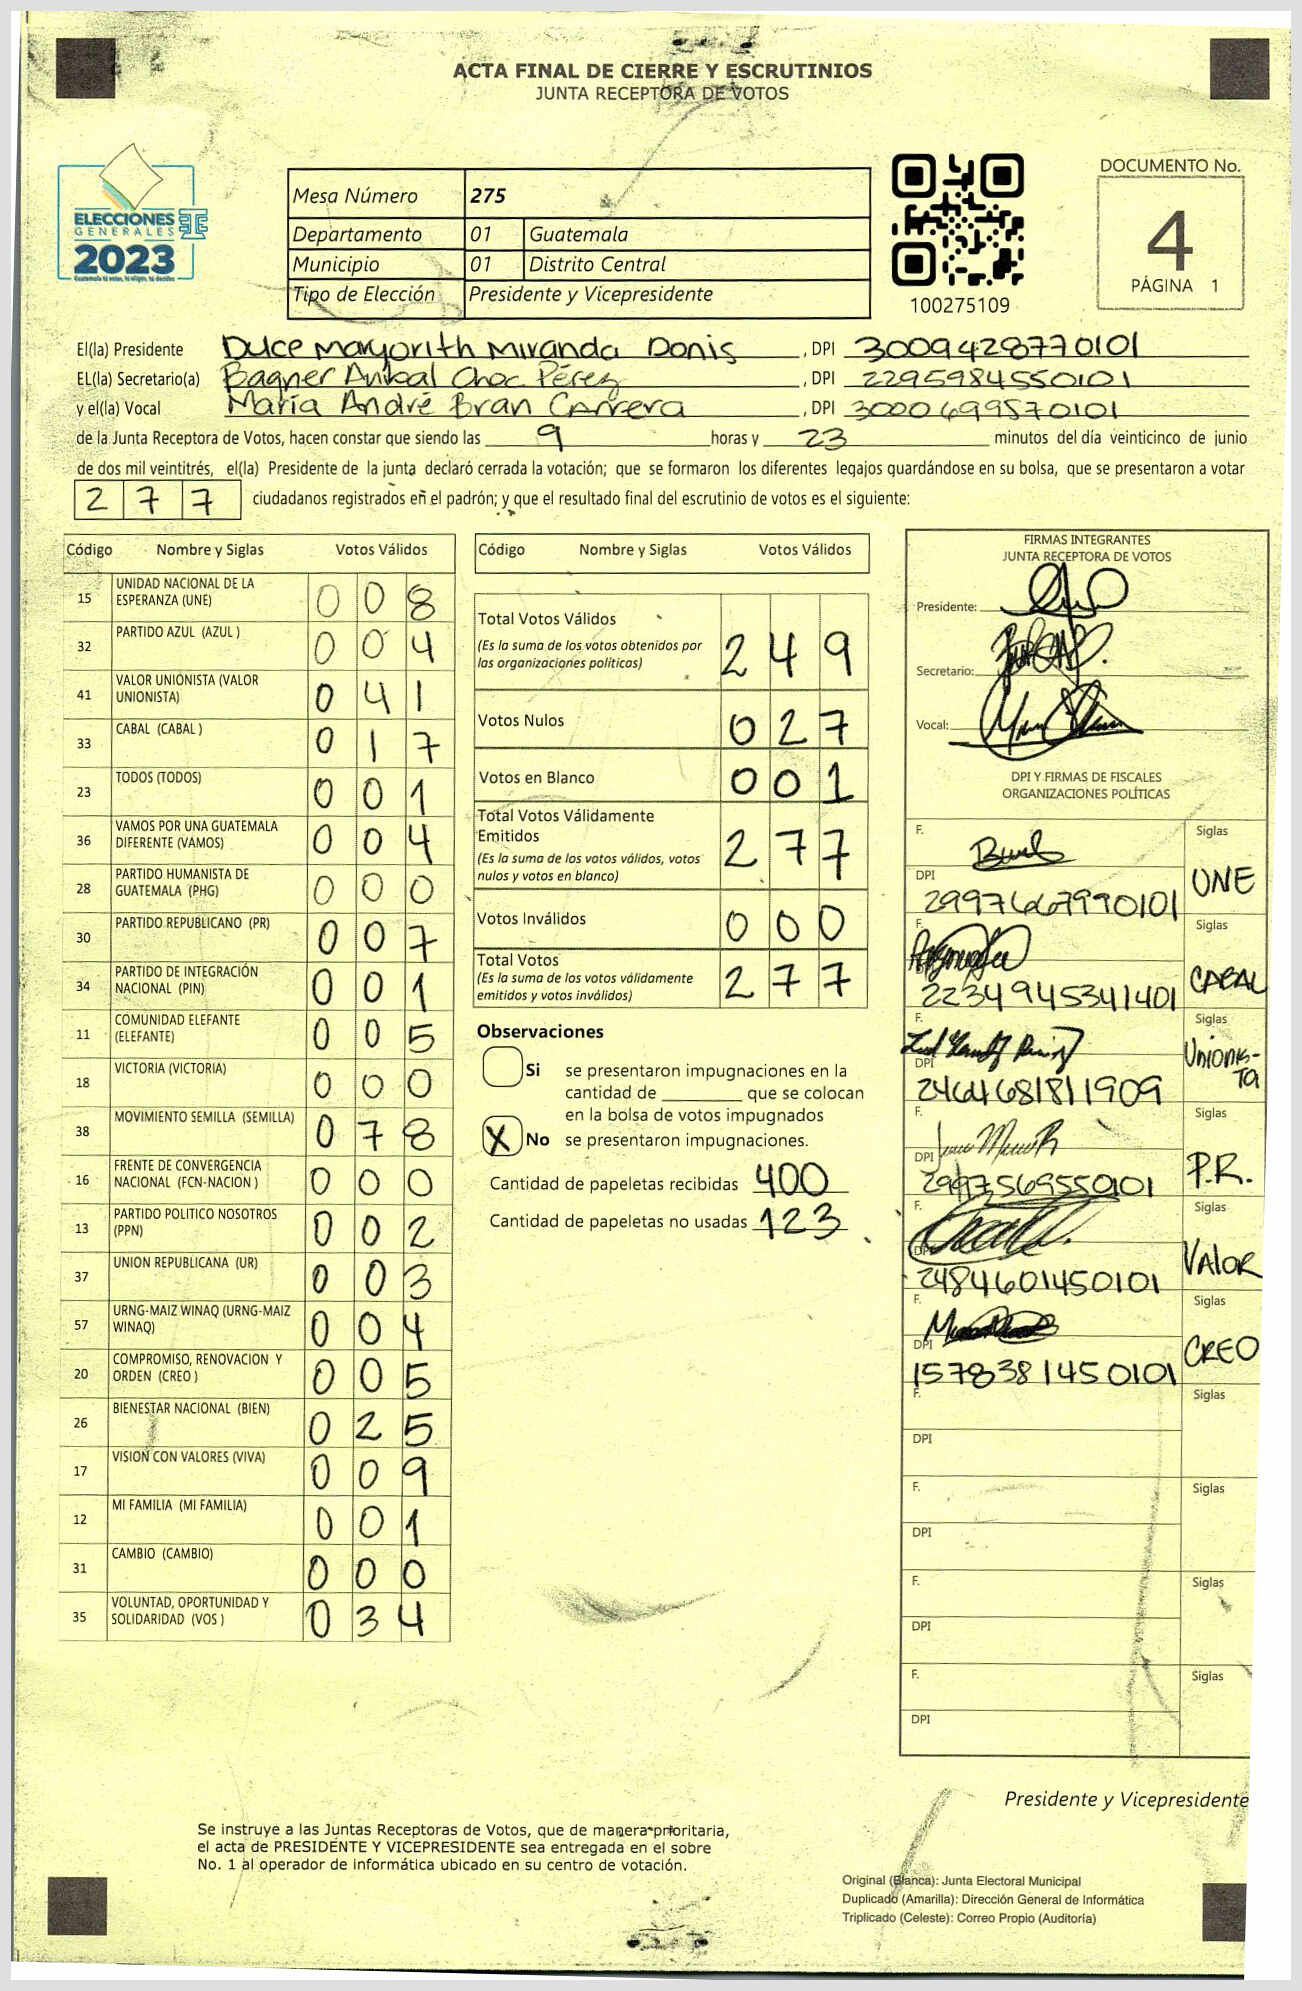 ACTA FINAL DE CIERRE Y ESCRUTINIOS
JUNTA RECEPTORA DE VOTOS
ELECCIONES
GENERALES
2023
Guatemala tú votas, tú eliges, tú decides
Mesa Número 275
Departamento 01 Guatemala
Municipio 01 Distrito Central
Tipo de Elección Presidente y Vicepresidente
100275109
DOCUMENTO No.
4
PÁGINA 1
El(la) Presidente Dulce Maryorith Miranda Donis , DPI 3009428770101
EL(la) Secretario(a) Bagner Anibal Choc Pérez , DPI 2295984550101
y el(la) Vocal María André Bran Carrera , DPI 3000699570101
de la Junta Receptora de Votos, hacen constar que siendo las 9 horas y 23 minutos del día veinticinco de junio
de dos mil veintitrés, el(la) Presidente de la junta declaró cerrada la votación; que se formaron los diferentes legajos guardándose en su bolsa, que se presentaron a votar
277 ciudadanos registrados en el padrón; y que el resultado final del escrutinio de votos es el siguiente:
Código Nombre y Siglas Votos Válidos
15 UNIDAD NACIONAL DE LA ESPERANZA (UNE) 008
32 PARTIDO AZUL (AZUL ) 004
41 VALOR UNIONISTA (VALOR UNIONISTA) 041
33 CABAL (CABAL ) 017
23 TODOS (TODOS) 001
36 VAMOS POR UNA GUATEMALA DIFERENTE (VAMOS) 004
28 PARTIDO HUMANISTA DE GUATEMALA (PHG) 000
30 PARTIDO REPUBLICANO (PR) 007
34 PARTIDO DE INTEGRACIÓN NACIONAL (PIN) 001
11 COMUNIDAD ELEFANTE (ELEFANTE) 005
18 VICTORIA (VICTORIA) 000
38 MOVIMIENTO SEMILLA (SEMILLA) 078
16 FRENTE DE CONVERGENCIA NACIONAL (FCN-NACION ) 000
13 PARTIDO POLITICO NOSOTROS (PPN) 002
37 UNION REPUBLICANA (UR) 003
57 URNG-MAIZ WINAQ (URNG-MAIZ WINAQ) 004
20 COMPROMISO, RENOVACION Y ORDEN (CREO ) 005
26 BIENESTAR NACIONAL (BIEN) 025
17 VISION CON VALORES (VIVA) 009
12 MI FAMILIA (MI FAMILIA) 001
31 CAMBIO (CAMBIO) 000
35 VOLUNTAD, OPORTUNIDAD Y SOLIDARIDAD (VOS ) 034
Código Nombre y Siglas Votos Válidos
Total Votos Válidos 249
(Es la suma de los votos obtenidos por
las organizaciones políticas)
Votos Nulos 027
Votos en Blanco 001
Total Votos Válidamente
Emitidos 277
(Es la suma de los votos válidos, votos
nulos y votos en blanco)
Votos Inválidos 000
Total Votos 277
(Es la suma de los votos válidamente
emitidos y votos inválidos)
Observaciones
Si se presentaron impugnaciones en la
cantidad de ________ que se colocan
en la bolsa de votos impugnados
X No se presentaron impugnaciones.
Cantidad de papeletas recibidas 400
Cantidad de papeletas no usadas 123
FIRMAS INTEGRANTES
JUNTA RECEPTORA DE VOTOS
Presidente:
Secretario:
Vocal:
DPI Y FIRMAS DE FISCALES
ORGANIZACIONES POLÍTICAS
F. Siglas
DPI 2997667990101 UNE
F. Siglas
2234945341401 CABAL
F. Siglas
DPI 2464681811909 Unionis-ta
F. Siglas
DPI 2997569550101 P.R.
F. Siglas
DPI 2484601450101 VALOR
F. Siglas
DPI 1578381450101 CREO
F. Siglas
DPI
F. Siglas
DPI
F. Siglas
DPI
F. Siglas
DPI
Presidente y Vicepresidente
Se instruye a las Juntas Receptoras de Votos, que de manera prioritaria,
el acta de PRESIDENTE Y VICEPRESIDENTE sea entregada en el sobre
No. 1 al operador de informática ubicado en su centro de votación.
Original (Blanca): Junta Electoral Municipal
Duplicado (Amarilla): Dirección General de Informática
Triplicado (Celeste): Correo Propio (Auditoría)